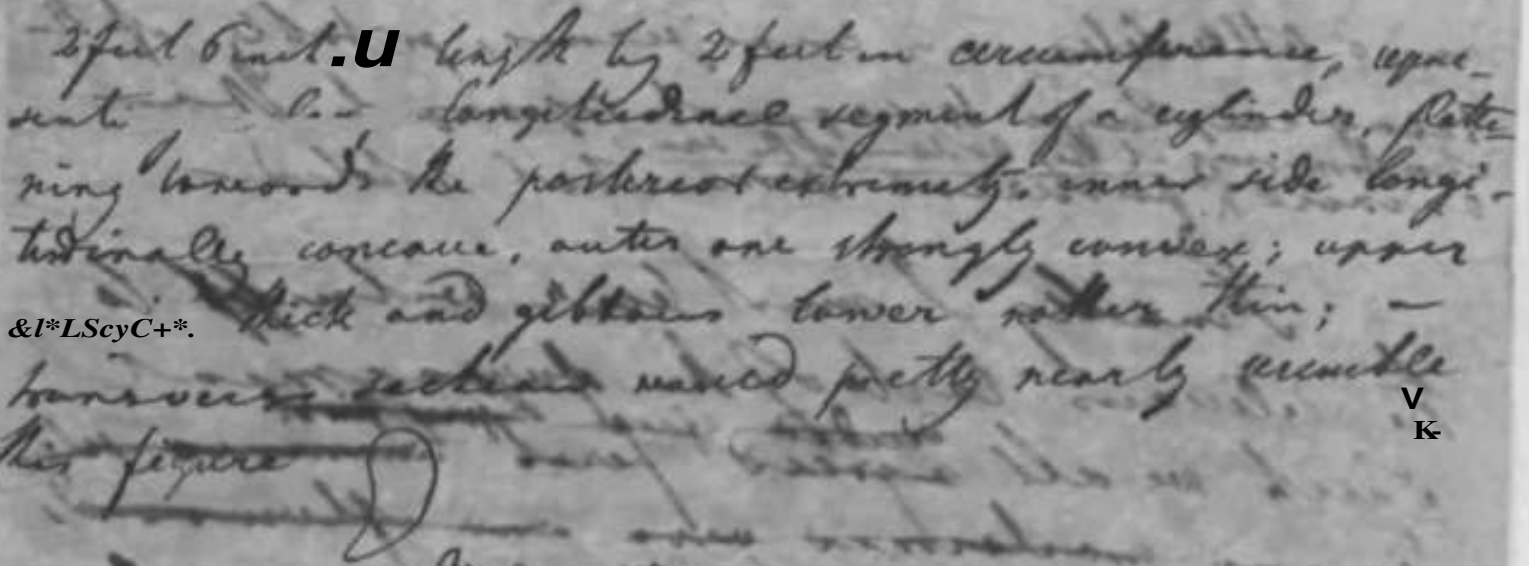 2 feet 6 inch .u length by 2 feet in circumference, repre-
sents longitudinal segment of a cylinder, flatte-
ning towards the posterior extremety, inner side longi-
tudinally concave, outer one strongly convex; upper
&l*LScyC+*. thick and gibbous lower rather thin; —
transverse sections would pretty nearly resemble
V
K-
this figure